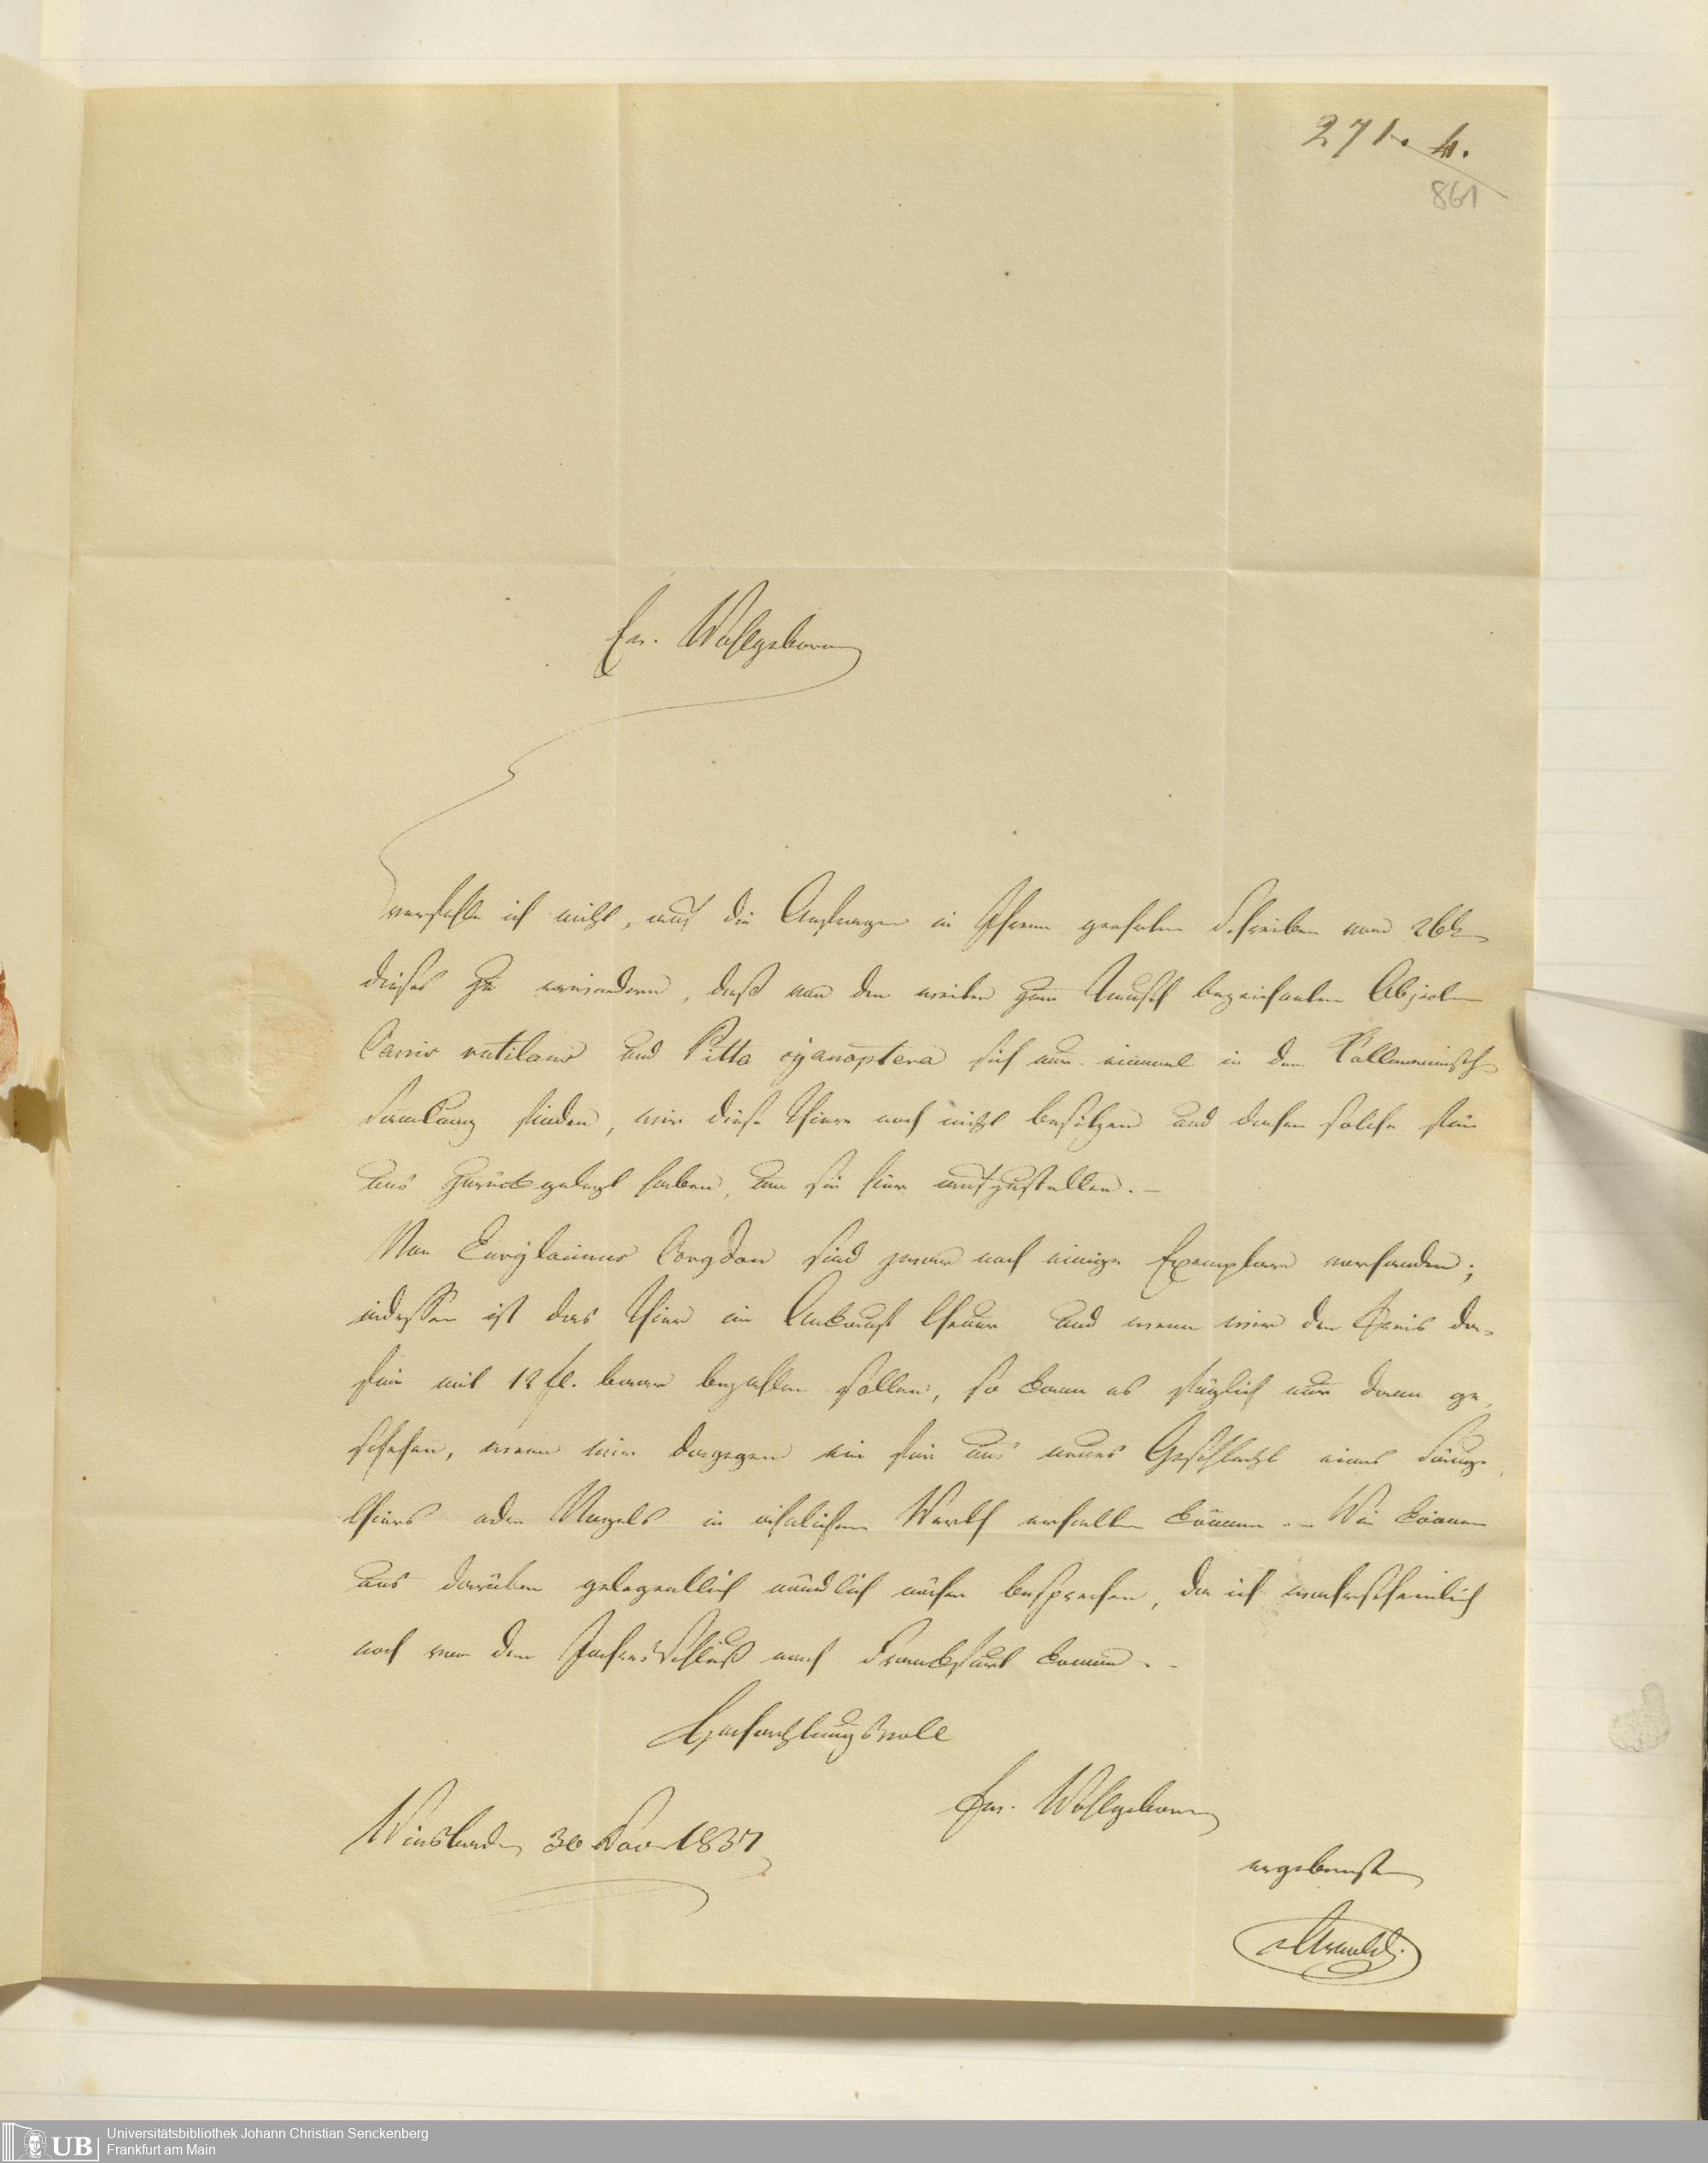 271. 4.
861
Ew. Wohlgeboren
verfehle ich nicht, auf die Anfragen in Ihrem geehrten Schreiben vom 26t
dieses zu erwiedern, daß von den weiter zum Tausch bezeichneten Objecten
Canis rutilans und Pitta cyanoptera sich nur einmal in der
Samlung finden, wir diese Thiere noch nicht besitzen und daher solche für
uns zurückgelegt haben, um sie hier aufzustellen. –
Von Eurylaimus Corydon sind zwar noch einige Exemplare vorhanden;
indessen ist das Thier im Ankauf theuer und wenn wir den Preis da-
für mit 12 fl. baar bezahlen sollen, so kann es füglich nur dann ge-
schehen, wenn wir dagegen ein für uns neues Geschlecht eines Säuge-
thiers oder Vogels in ähnlichem Werth erhalten können. – Wir können
uns darüber gelegentlich mündlich näher besprechen, da ich wahrscheinlich
noch vor dem Jahresschluß nach Frankfurt komme. –
Hochachtungsvoll
Ew. Wohlgeboren
Wiesbaden 30 Nov 1837
ergebenster
UB Universitätsbibliothek Johann Christian Senckenberg
Frankfurt am Main